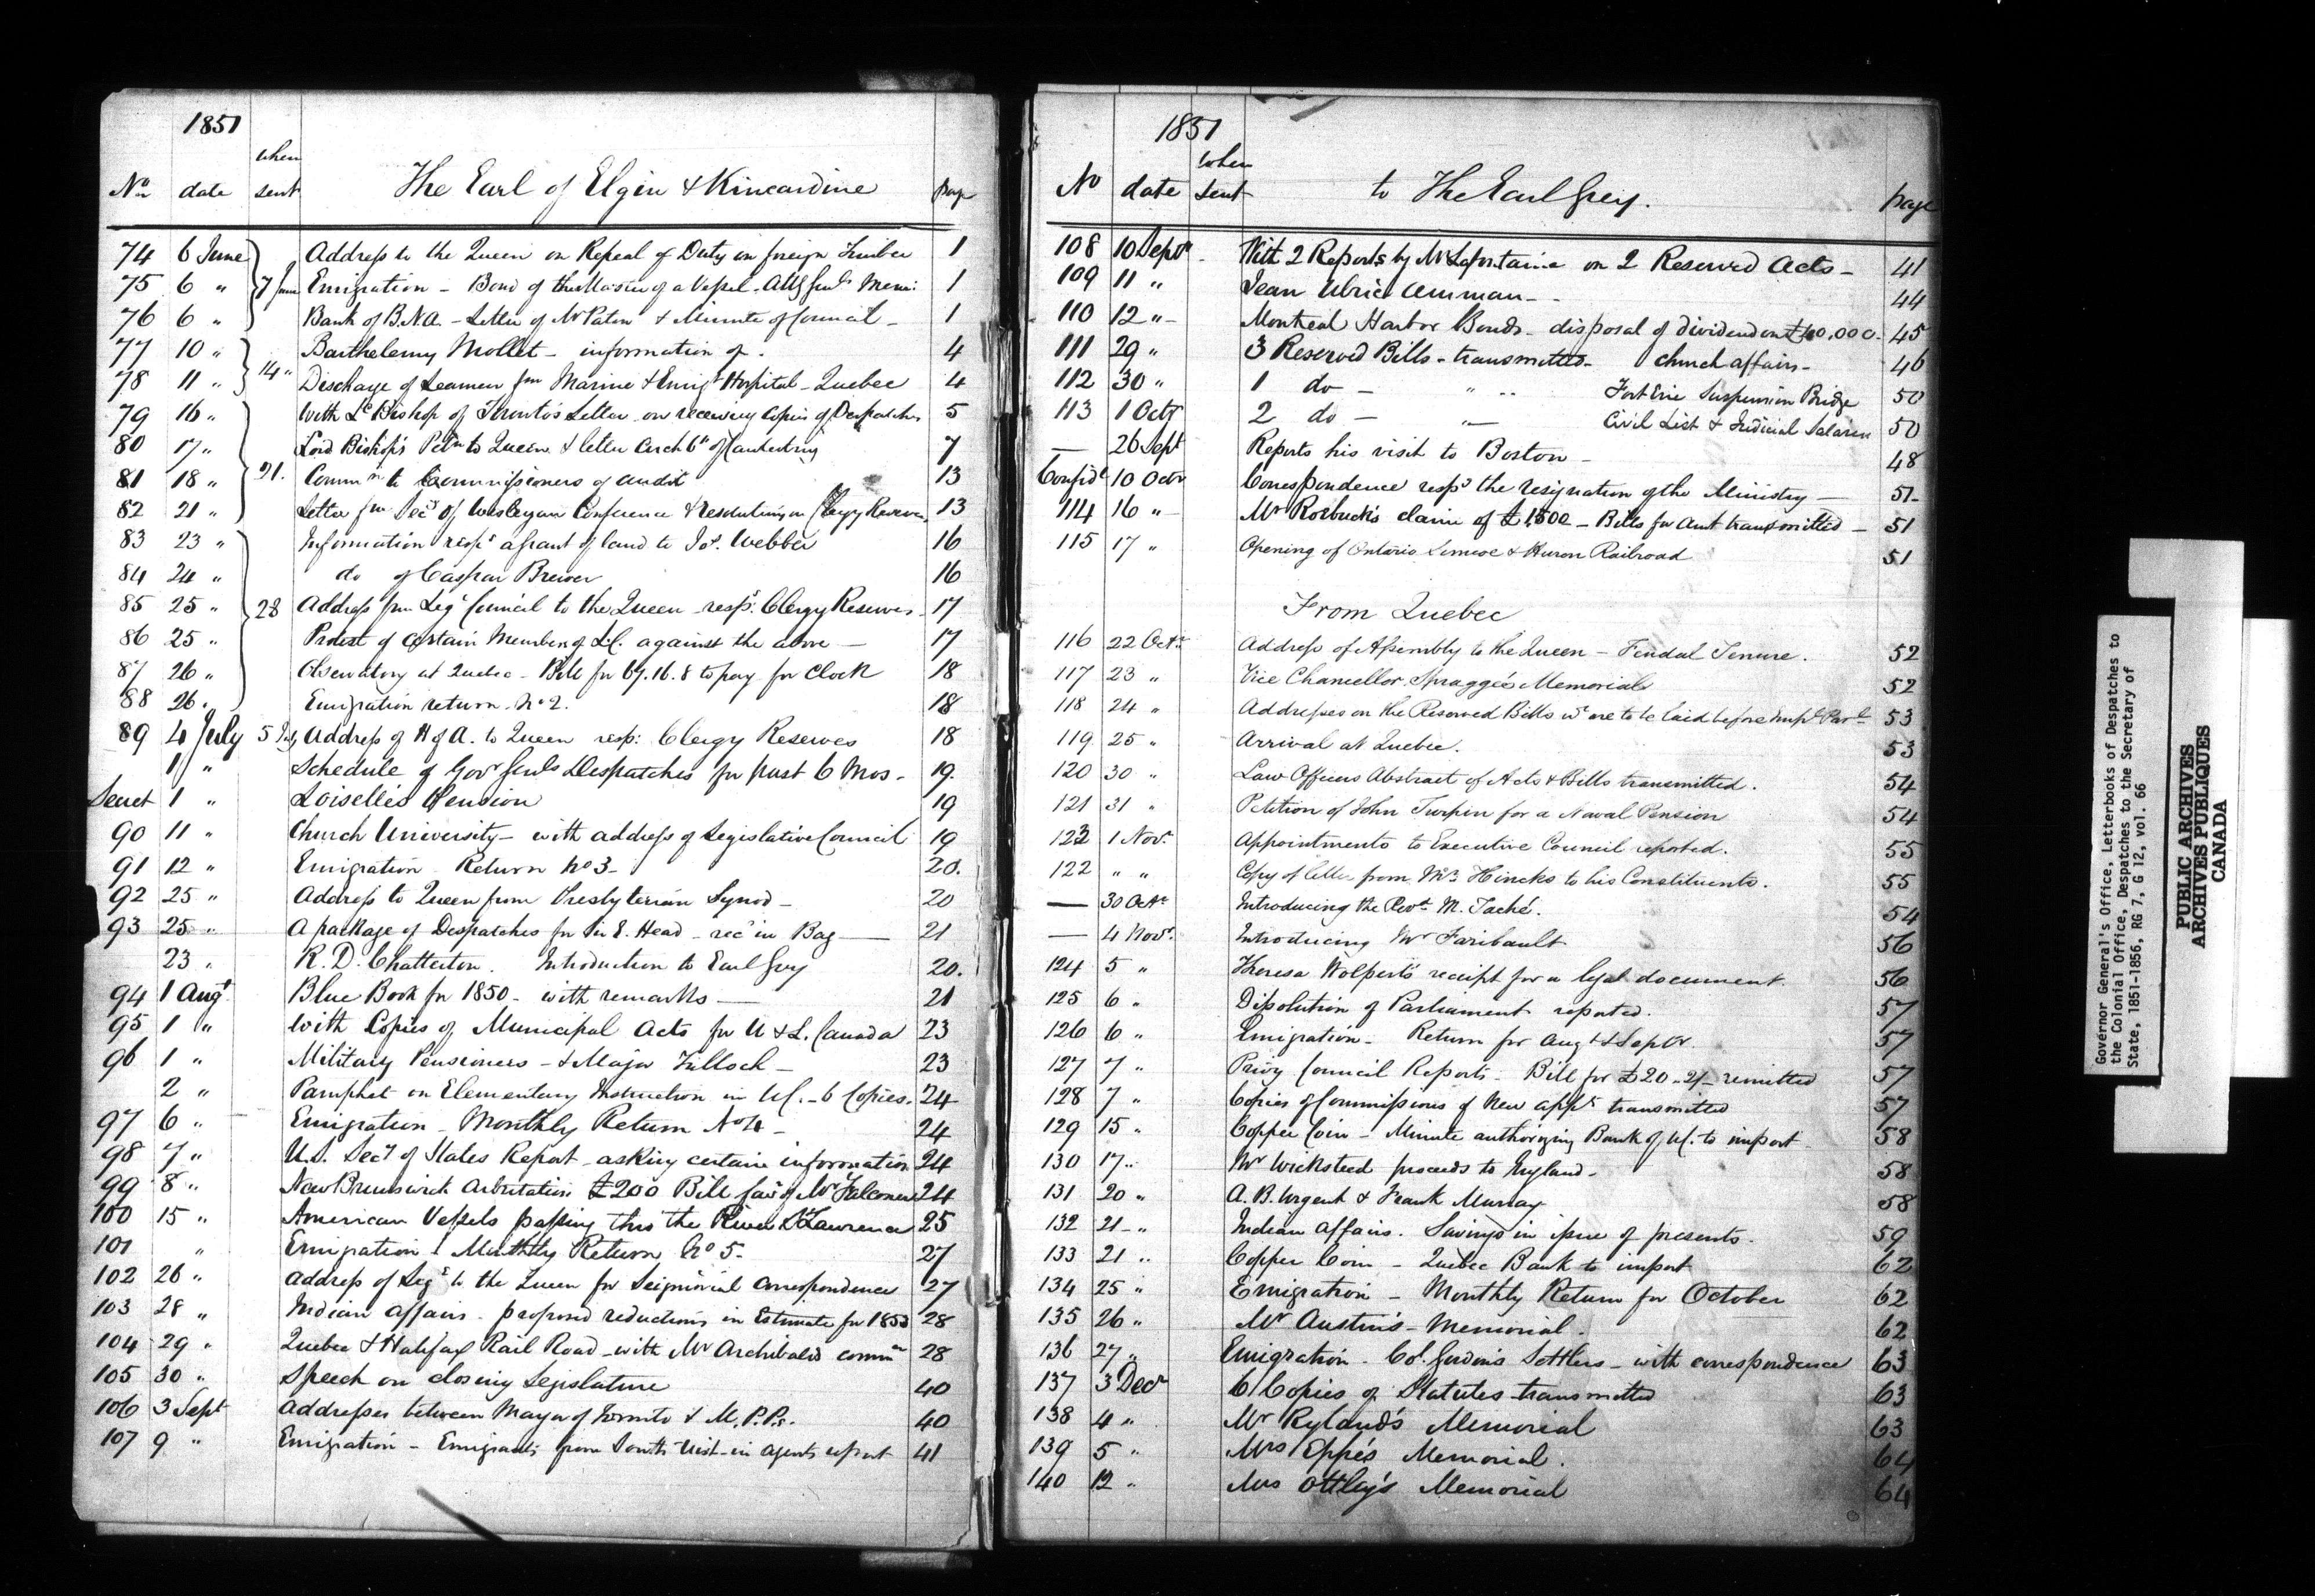 1851
when
No date sent The Earl of Elgin & Kincardine page
74 6 June Address to the Queen on Repeal of Duty on foreign Timber 1
75 6 " 7 June Emigration - Bond of the Master of a Vessel - Atty Genls Mem: 1
76 6 " Bank of B.N.A. - Letter of Mr Paton & Minute of Council - 1
77 10 " Barthelemy Mollet - information of - 4
78 11 " 14 " Discharge of Seamen fm Marine & Emigt Hospital - Quebec 4
79 16 " With Ld Bishop of Toronto's Letter on receiving Copies of Despatches 5
80 17 " Lord Bishop's Petn to Queen & letter Arch bp of Canterbury 7
81 18 " 21. Commn to Commissioners of Audit 13
82 21 " Letter fm Secy of Wesleyan Conference & resolutions on Clergy Reserves 13
83 23 " Information respg a grant of land to Jos. Webber 16
84 24 " do of Caspar Brewer 16
85 25 " 28 Address fm Legve Council to the Queen respg Clergy Reserves - 17
86 25 " Protest of certain Members of L.C. against the above - 17
87 26 " Observatory at Quebec - Bill for 69.16.8 to pay for Clock 18
88 26 " Emigration return - No 2. 18
89 4 July 5 July Address of H of A. to Queen resp: Clergy Reserves 18
1 " Schedule of Govr Genls Despatches for past 6 Mos - 19.
Secret 1 " Loiselle's Pension 19
90 11 " Church University - with address of Legislative Council 19
91 12 " Emigration Return No 3 - 20.
92 25 " Address to Queen from Presbyterian Synod - 20
93 25 " A package of Despatches for Sir E. Head - recd in Bag - 21
23 " R. D. Chatterton. Introduction to Earl Grey 20.
94 1 Augt Blue Book for 1850 - with remarks - 21
95 1 " With Copies of Municipal Acts for U & L. Canada 23
96 1 " Military Pensioners - & Major Tulloch - 23
2 " Pamphet on Elementary Instruction in U.C. - 6 Copies. 24
97 6 " Emigration - Monthly Return No 4 - 24
98 7 " U.S. Secy of States Report - asking certain information 24
99 8 " New Brunswick Arbitration £200 Bill favr of Mr Falconer 24
100 15 " American Vessels passing thro' the River St Lawrence 25
101 " Emigration Monthly Return No 5 - 27
102 26 " Address of Legve to the Queen for Seigniorial correspondence 27
103 28 " Indian Affairs - proposed reductions in Estimate for 1853 28
104 29 " Quebec & Halifax Rail Road - with Mr Archibald's commn 28
105 30 " Speech on closing Legislature 40
106 3 Sept Addresses between Mayor of Toronto & M.P.Ps. 40
107 9 " Emigration - Emigrants from South Uist - in agents report 41
1851
when
No date sent to The Earl Grey. page
108 10 Septr With 2 Reports by Mr Lafontaine on 2 Reserved Acts - 41
109 11 " Jean Ulric Amman - 44
110 12 " Montreal Harbor Bonds - disposal of dividend on 45
111 29 " 3 Reserved Bills - transmitted - church affairs - 46
112 30 " 1 do - " Fort Erie Suspension Bridge 50
113 1 Octr 2 do - " Civil List & Judicial Salaries 50
— 26 Sept Reports his visit to Boston - 48
Confidl 10 Octr Correspondence respg the resignation of the Ministry - 51 -
114 16 " Mr Roebuck's claim of £1,500 - Bills for amt transmitted - 51
115 17 " Opening of Ontario Simcoe & Huron Railroad 51
From Quebec
116 22 Octr Address of Assembly to the Queen - Feudal Tenure. 52
117 23 " Vice Chancellor Spragge's Memorial 52
118 24 " Addresses on the Reserved Bills wh are to be laid before Impl Parlt 53
119 25 " Arrival at Quebec. 53
120 30 " Law Officers Abstract of Acts & Bills transmitted. 54
121 31 " Petition of John Turpin for a Naval Pension 54
123 1 Novr Appointments to Executive Council reported. 55
122 " " Copy of letter from Mr Hincks to his Constituents. 55
— 30 Octr Introducing the Revd M. Taché. 54
— 4 Novr. Introducing Mr Faribault 56
124 5 " Theresa Wolpert's receipt for a legal document. 56
125 6 " Dissolution of Parliament reported. 57
126 6 " Emigration - Return for Augt & Septr. 57
127 7 " Privy Council Reports - Bill for £20 .. 2/- remitted 57
128 7 " Copies of Commissions of New appts transmitted 57
129 15 " Copper Coin - Minute authorizing Bank of U.C. to import 58
130 17 " Mr Wicksteed proceeds to England - 58
131 20 " A. B. Urgent & Frank Murray 58
132 21 " Indian Affairs. Savings in issue of presents. 59
133 21 " Copper Coin - Quebec Bank to import 62
134 25 " Emigration - Monthly Return for October 62
135 26 " Mr Austin's - Memorial. 62
136 27 " Emigration - Col. Gordon's Settlers - with correspondence 63
137 3 Decr 6 Copies of Statutes transmitted 63
138 4 " Mr Ryland's Memorial 63
139 5 " Mrs Eppe's Memorial. 64
140 12 " Mrs Ottley's Memorial 64
Governor General's Office, Letterbooks of Despatches to
the Colonial Office, Despatches to the Secretary of
State, 1851-1856, RG 7, G 12, vol. 66
PUBLIC ARCHIVES
ARCHIVES PUBLIQUES
CANADA